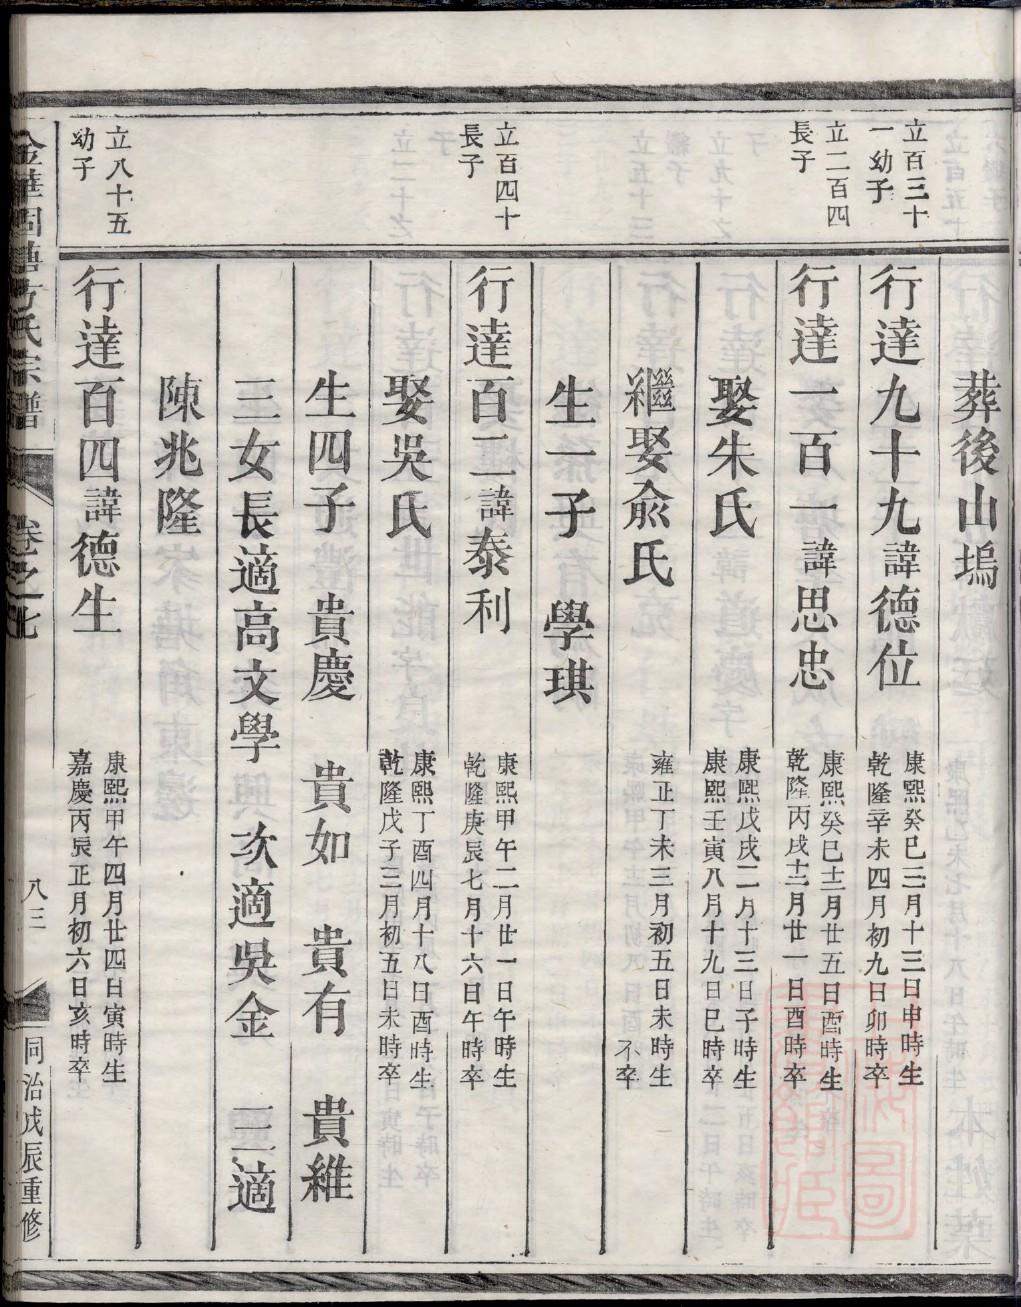 葬後山塢
立百三十
一幼子
行達九十九諱德位
康熙癸巳三月十三日申時生
乾隆辛未四月初九日卯時卒
立二百四
長子
行達一百一諱思忠
康熙癸巳十二月廿五日酉時生
乾隆丙戌十二月廿一日酉時卒
娶朱氏
康熙戊戌二月十三日子時生
康熙壬寅八月十九日巳時卒
繼娶俞氏
雍正丁未三月初五日未時生
不卒
生一子 學琪
立百四十
長子
行達百二諱泰利
康熙甲午二月廿一日午時生
乾隆庚辰七月十六日午時卒
娶吳氏
康熙丁酉四月十八日酉時生
乾隆戊子三月初五日未時卒
生四子 貴慶 貴如 貴有 貴維
三女長適高文學 次適吳金 三適
陳兆隆
立八十五
幼子
行達百四諱德生
康熙甲午四月廿四日寅時生
嘉慶丙辰正月初六日亥時卒
方氏宗譜 卷之七 八三 同治戊辰重修